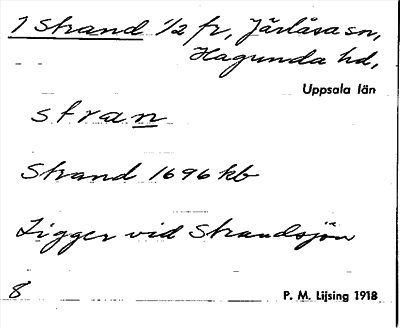 1 Strand 1/2 fr, Järlåsa sn,
Hagunda hd,
Uppsala län
stran
Strand 1696 kb
Ligger vid Strandsjön
8 P. M. Lijsing 1918